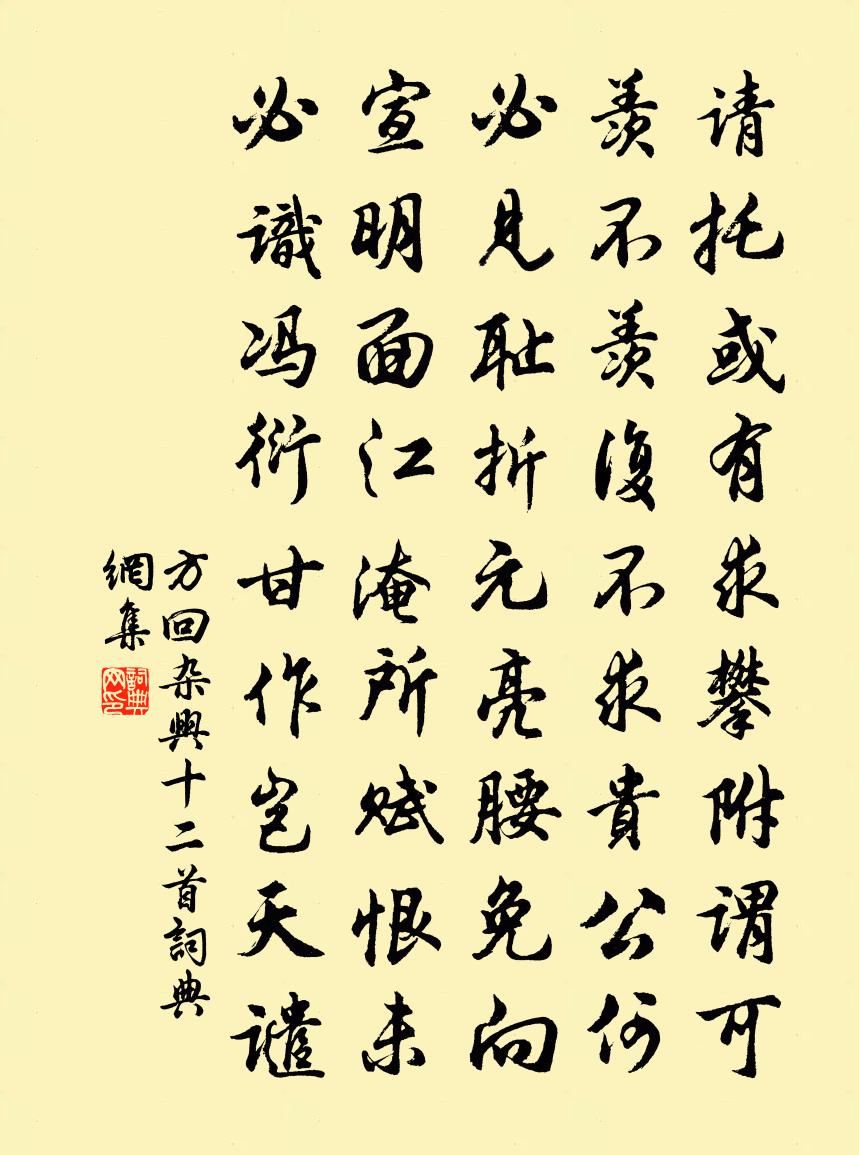 请托或有求攀附谓可
羡不羡復不求貴公何
必見耻折元亮腰免向
宣明面江淹所赋恨未
必識冯衍甘作岂天谴
方回杂興十二首詞典
網集
詞典
网印